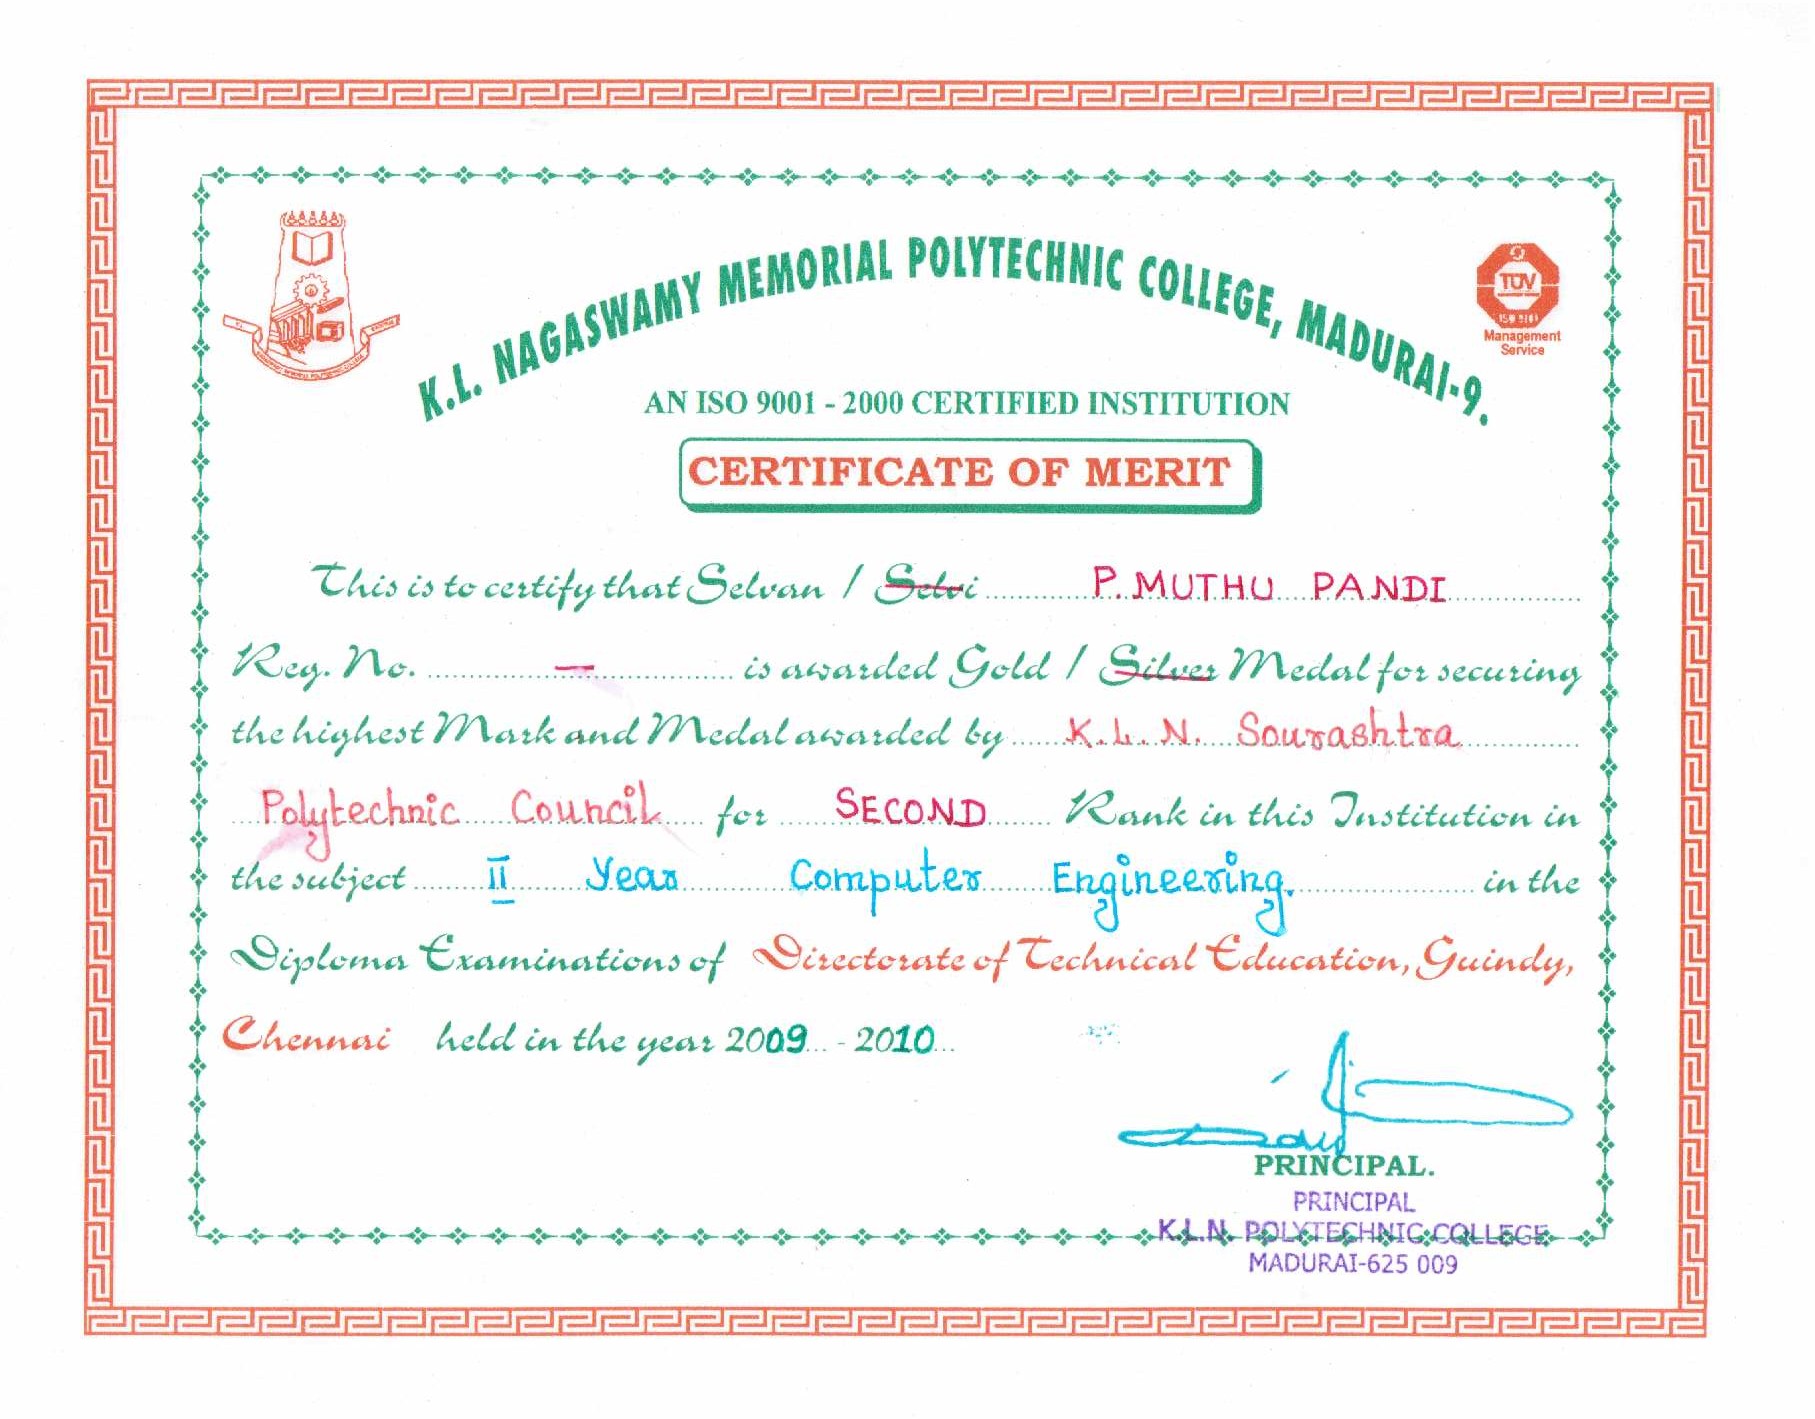 K.L. NAGASWAMY MEMORIAL POLYTECHNIC COLLEGE, MADURAI-9.
TÜV
ISO 9001
Management
Service
AN ISO 9001 - 2000 CERTIFIED INSTITUTION
CERTIFICATE OF MERIT
This is to certify that Selvan / Selvi P. MUTHU PANDI
Reg. No. — is awarded Gold / Silver Medal for securing
the highest Mark and Medal awarded by K.L.N. Sourashtra
Polytechnic Council for SECOND Rank in this Institution in
the subject II Year Computer Engineering. in the
Diploma Examinations of Directorate of Technical Education, Guindy,
Chennai held in the year 2009 - 2010
PRINCIPAL.
PRINCIPAL
K.L.N. POLYTECHNIC COLLEGE
MADURAI-625 009